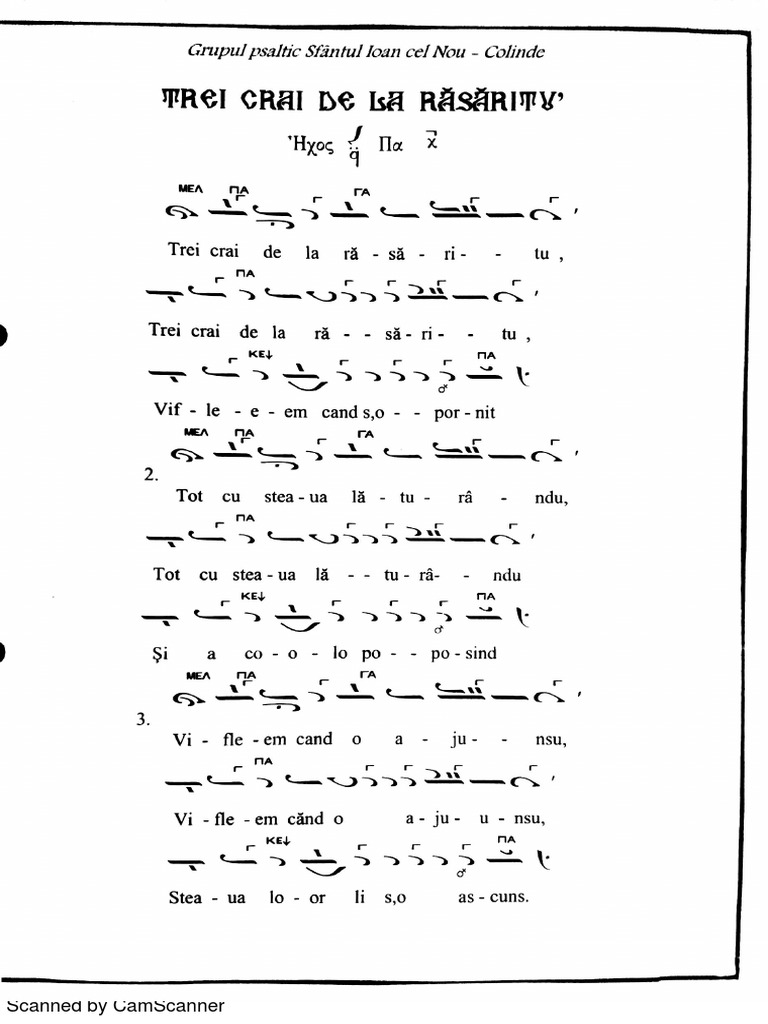 Grupul psaltic Sfântul Ioan cel Nou - Colinde
TREI CRAI DE LA RĂSĂRITU'
Ἦχος q̈ Πα x̄
ΜΕΛ ΠΑ ΓΑ
Trei crai de la ră - să - ri - - tu ,
ΠΑ
Trei crai de la ră - - să - ri - - tu ,
ΚΕ↓ ΠΑ
Vif - le - e - em cand s,o - - por - nit
ΜΕΛ ΠΑ ΓΑ
2.
Tot cu stea - ua lă - tu - râ - ndu,
ΠΑ
Tot cu stea - ua lă - - tu - râ- - ndu
ΚΕ↓ ΠΑ
Şi a co - o - lo po - - po - sind
ΜΕΛ ΠΑ ΓΑ
3.
Vi - fle - em cand o a - ju - - nsu,
ΠΑ
Vi - fle - em cănd o a - ju - u - nsu,
ΚΕ↓ ΠΑ
Stea - ua lo - or li s,o as - cuns.
Scanned by CamScanner